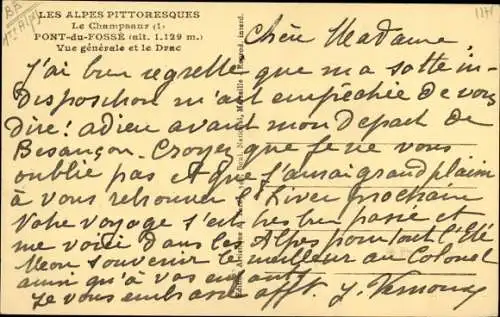 LES ALPES PITTORESQUES
Le Champsaur (1.
PONT-du-FOSSÉ (alt. 1.129 m.)
Vue générale et le Drac
Chère Madame
J'ai bien regretté que ma sotte in-
disposition m'ait empêchée de vous
dire! adieu avant mon Depart de
Besançon. Croyez que je ne vous
oublie pas et que j'aurai grand plaisir
à vous retrouver l'hiver prochain
Votre voyage s'est très bien passé et
me voici dans les Alpes pour tout l'Eté
Mon souvenir le meilleur au Colonel
ainsi qu'à vos enfants
Je vous embrasse afft.